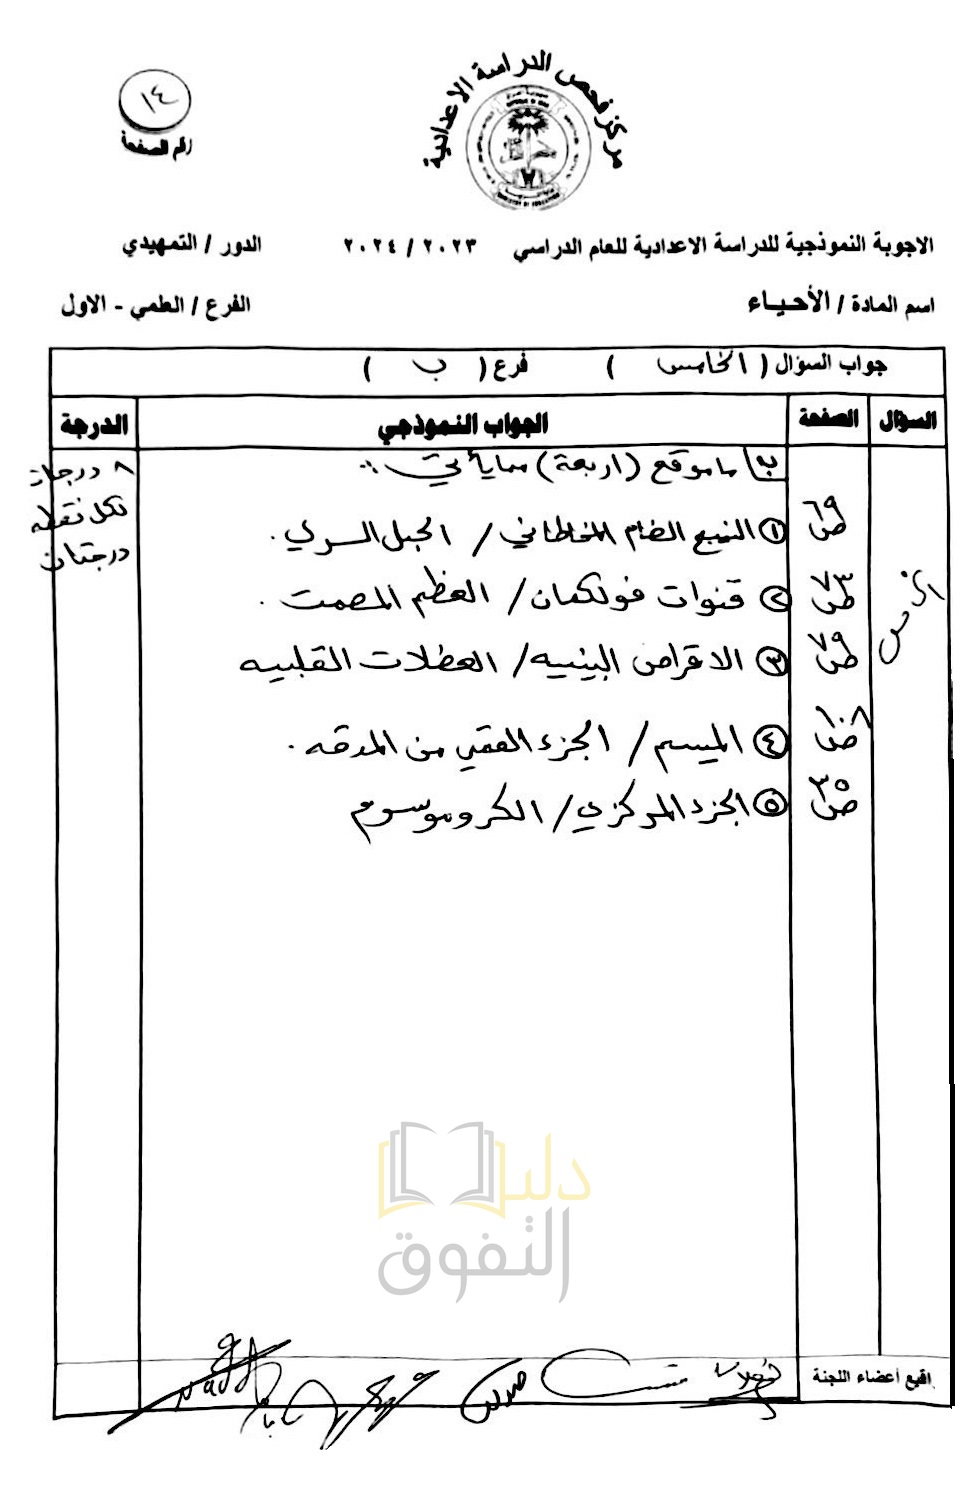 مركز فحص الدراسة الاعدادية
١٤
رقم الصفحة
الاجوبة النموذجية للدراسة الاعدادية للعام الدراسي ٢٠٢٣ / ٢٠٢٤ الدور / التمهيدي
اسم المادة / الأحياء الفرع / العلمي - الاول
جواب السؤال ( الخامس ) فرع ( ب )
السؤال الصفحة الجواب النموذجي الدرجة
ب) ما موقع (اربعة) مما يأتي :- ٨ درجات
لكل نقطة
درجتان
ص٦٩ ① النسيج الضام المخاطي / الحبل السري .
ص٧٣ ② قنوات فولكمان / العظم المصمت .
ص٧٩ ③ الاقراص البينيه / العضلات القلبيه
ص١٠٨ ④ الميسم / الجزء القمي من المدقه .
ص٣٥ ⑤ الجزء المركزي / الكروموسوم
الخامس
دليل
التفوق
اقيع أعضاء اللجنة